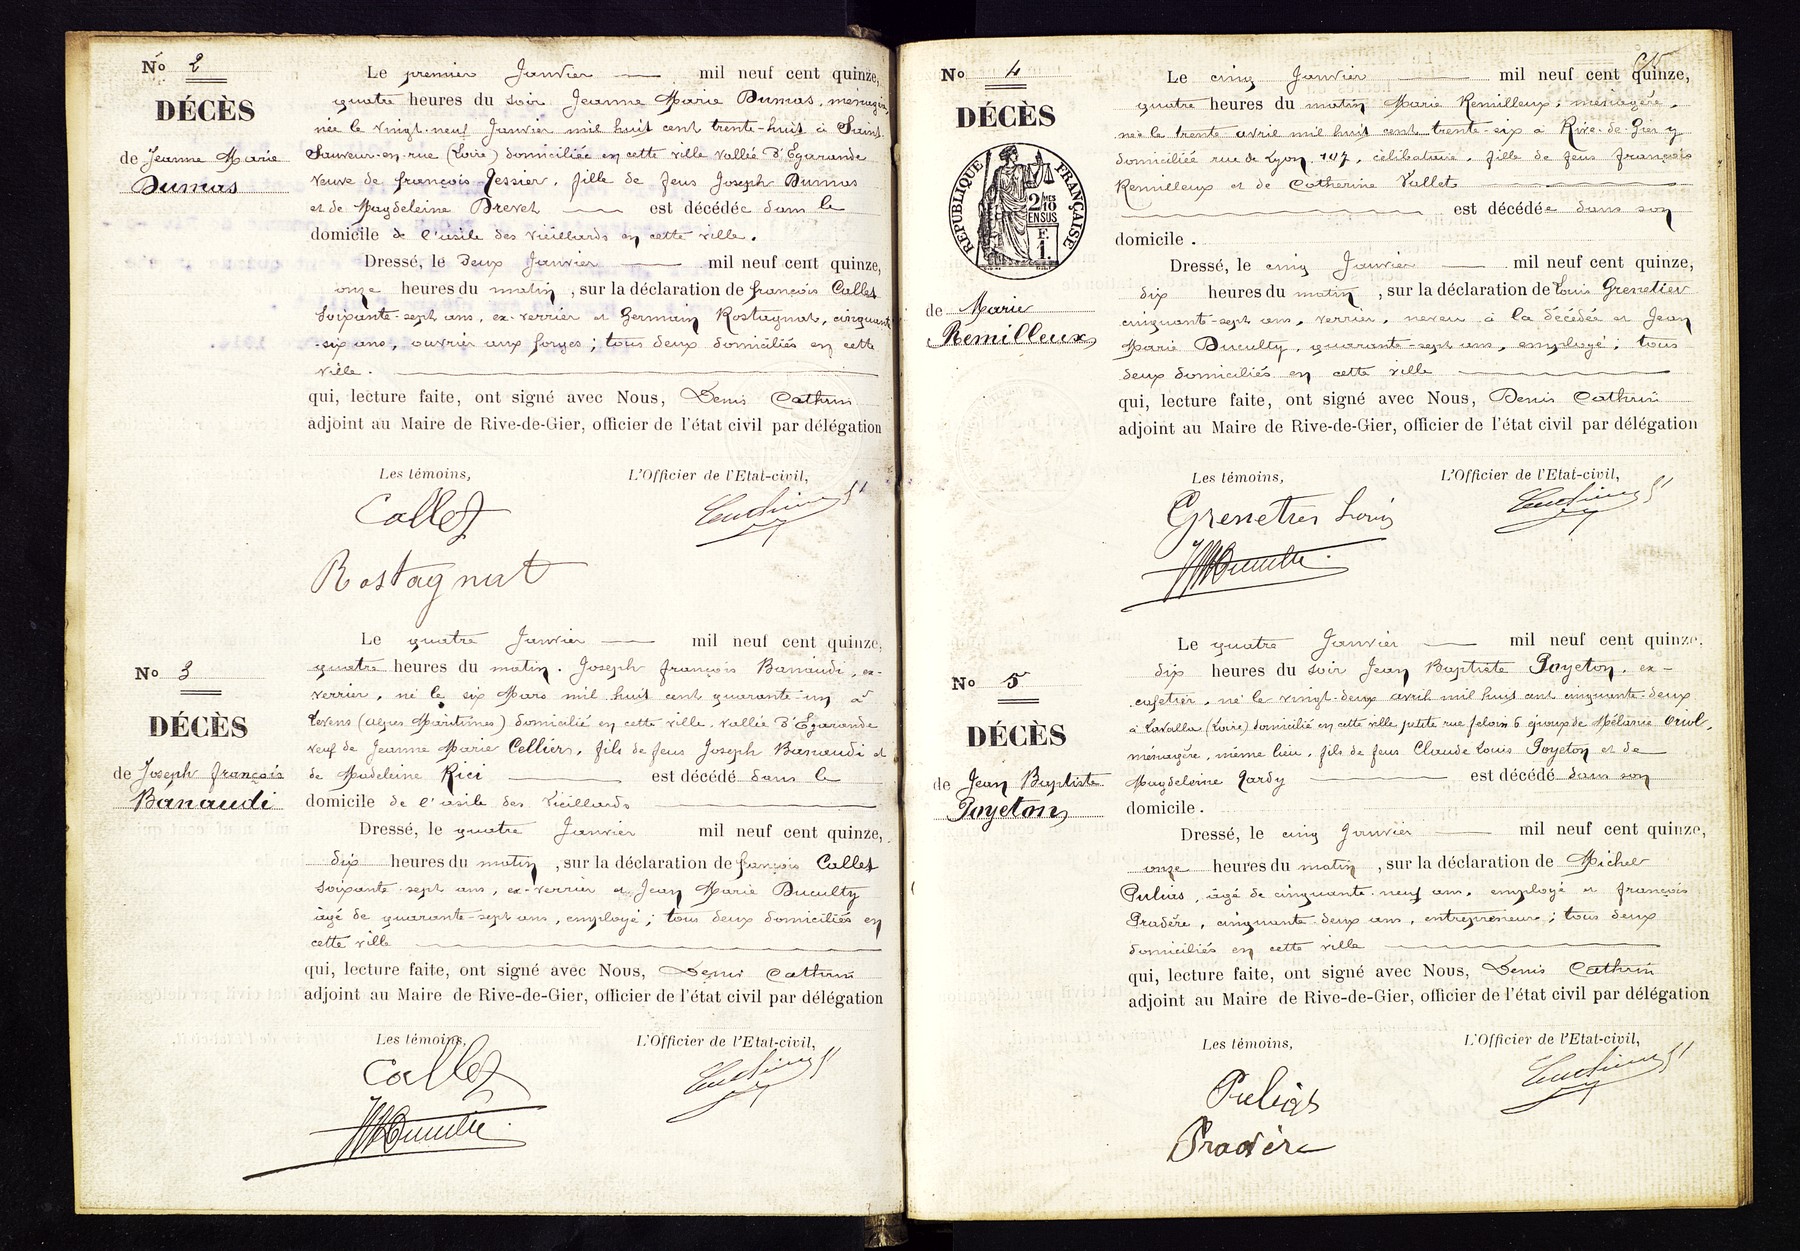 No 2
DÉCÈS
de Jeanne Marie
Dumas
Le premier Janvier mil neuf cent quinze,
quatre heures du soir Jeanne Marie Dumas, ménagère,
née le vingt-neuf Janvier mil huit cent trente-huit à Saint
Sauveur-en-rue (Loire) domiciliée en cette ville vallée d'Egarande
veuve de François Tessier, fille de feus Joseph Dumas
et de Magdeleine Drevet est décédée dans le
domicile de l'asile des vieillards en cette ville.
Dressé, le deux Janvier mil neuf cent quinze,
onze heures du matin, sur la déclaration de François Callet
soixante-sept ans, ex-verrier et Germain Rostagnat, cinquante
-six ans, ouvrier aux forges; tous deux domiciliés en cette
ville.
qui, lecture faite, ont signé avec Nous, Denis Cathrin
adjoint au Maire de Rive-de-Gier, officier de l'état civil par délégation
Les témoins, L'Officier de l'Etat-civil,
Callet
Rostagnat
No 3
DÉCÈS
de Joseph François
Bànaudi
Le quatre Janvier mil neuf cent quinze,
quatre heures du matin. Joseph François Banaudi, ex-
verrier, né le six Mars mil huit cent quarante-un à
Levens (Alpes Maritimes) domicilié en cette ville, vallée d'Egarande
veuf de Jeanne Marie Cellier, fils de feus Joseph Banaudi et
de Madeleine Rici est décédé dans le
domicile de l'asile des vieillards
Dressé, le quatre Janvier mil neuf cent quinze,
dix heures du matin, sur la déclaration de François Callet
soixante-sept ans, ex-verrier et Jean Marie Duculty
âgé de quarante-sept ans, employé; tous deux domiciliés en
cette ville
qui, lecture faite, ont signé avec Nous, Denis Cathrin
adjoint au Maire de Rive-de-Gier, officier de l'état civil par délégation
Les témoins, L'Officier de l'Etat-civil,
Callet
No 4
DÉCÈS
RÉPUBLIQUE FRANÇAISE
2/10
EN SUS
F.
1.
de Marie
Remilleux
Le cinq Janvier mil neuf cent quinze,
quatre heures du matin Marie Remilleux, ménagère,
née le trente avril mil huit cent trente-six à Rive-de-Gier y
domiciliée rue de Lyon, 107, célibataire, fille de feus François
Remilleux et de Catherine Vallet
est décédée dans son
domicile.
Dressé, le cinq Janvier mil neuf cent quinze,
dix heures du matin, sur la déclaration de Louis Grenetier
cinquante-sept ans, verrier, neveu à la décédée et Jean
Marie Duculty, quarante-sept ans, employé; tous
deux domiciliés en cette ville
qui, lecture faite, ont signé avec Nous, Denis Cathrin
adjoint au Maire de Rive-de-Gier, officier de l'état civil par délégation
Les témoins, L'Officier de l'Etat-civil,
Grenetier Louis
No 5
DÉCÈS
de Jean Baptiste
Poyeton
Le quatre Janvier mil neuf cent quinze,
dix heures du soir Jean Baptiste Poyeton, ex-
cafetier, né le vingt-deux avril mil huit cent cinquante-deux
à Lavalla (Loire) domicilié en cette ville petite rue Feloin 6 époux de Mélanie Oriol,
ménagère, même lieu, fils de feus Claude Louis Poyeton et de
Magdeleine Tardy est décédé dans son
domicile.
Dressé, le cinq Janvier mil neuf cent quinze,
onze heures du matin, sur la déclaration de Michel
Pulias, âgé de cinquante-neuf ans, employé et François
Pradère, cinquante-deux ans, entrepreneur; tous deux
domiciliés en cette ville
qui, lecture faite, ont signé avec Nous, Denis Cathrin
adjoint au Maire de Rive-de-Gier, officier de l'état civil par délégation
Les témoins, L'Officier de l'Etat-civil,
Pulias
Pradère